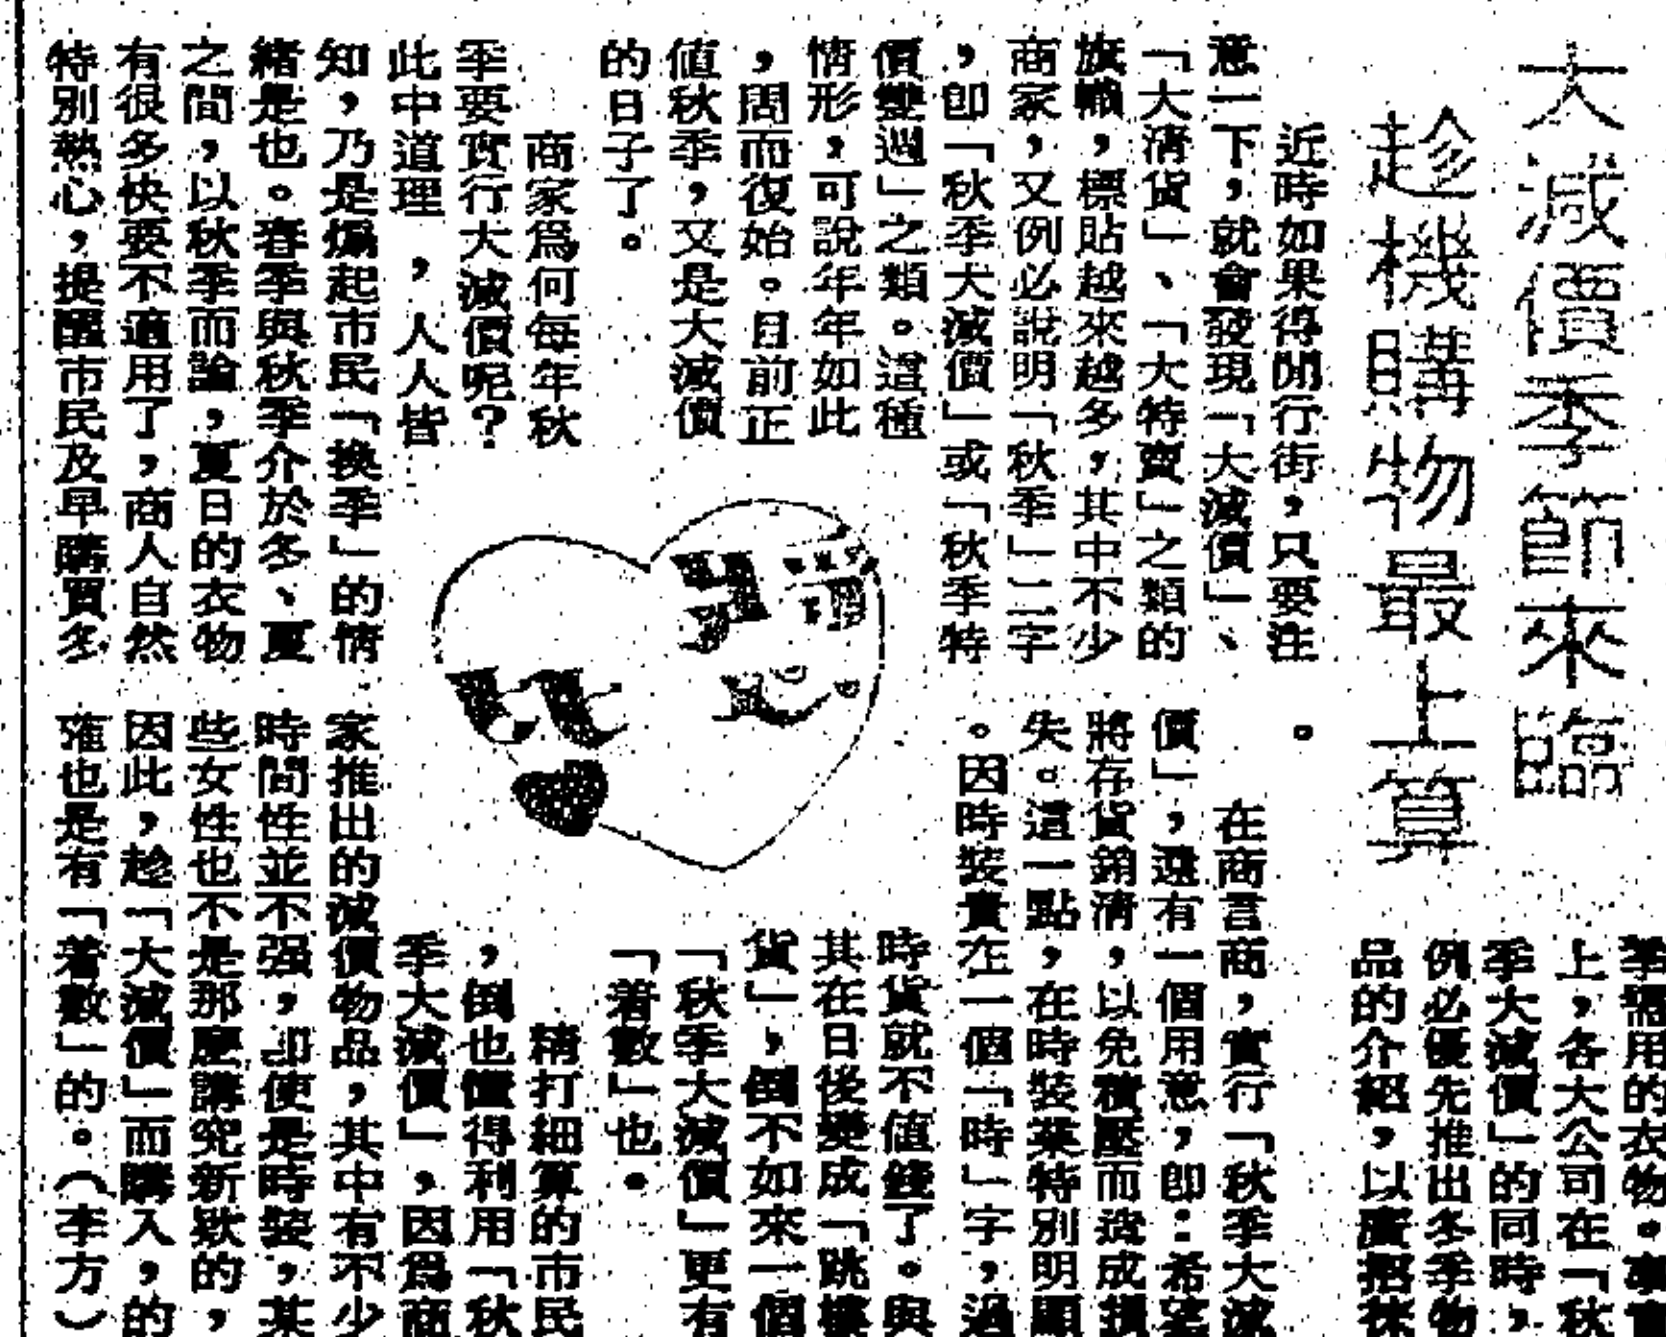 大減價季節來臨
趁機購物最上算
近時如果得閒行街，只要注
意一下，就會發現「大減價」、
「大清貨」、「大特賣」之類的
旗幟，標貼越來越多，其中不少
商家，又例必說明「秋季」二字
，即「秋季大減價」或「秋季特
價雙週」之類。這種
情形，可說年年如此
，周而復始。目前正
值秋季，又是大減價
的日子了。
商家爲何每年秋
季要實行大減價呢？
此中道理，人人皆
知，乃是煽起市民「換季」的情
緒是也。春季與秋季介於冬、夏
之間，以秋季而論，夏日的衣物
有很多快要不適用了，商人自然
特別熱心，提醒市民及早購買冬
季需用的衣物。事實
上，各大公司在「秋
季大減價」的同時，
例必優先推出冬季物
品的介紹，以廣招徠
。
在商言商，實行「秋季大減
價」，還有一個用意，即：希望
將存貨銷清，以免積壓而造成損
失。這一點，在時裝業特別明顯
。因時裝實在一個「時」字，過
時貨就不值錢了。與
其在日後變成「跳樓
貨」，倒不如來一個
「秋季大減價」更有
「着數」也。
精打細算的市民
，倒也懂得利用「秋
季大減價」，因爲商
家推出的減價物品，其中有不少
時間性並不强，即使是時裝，某
些女性也不是那麼講究新欵的，
因此，趁「大減價」而購入，的
確也是有「着數」的。（李方）